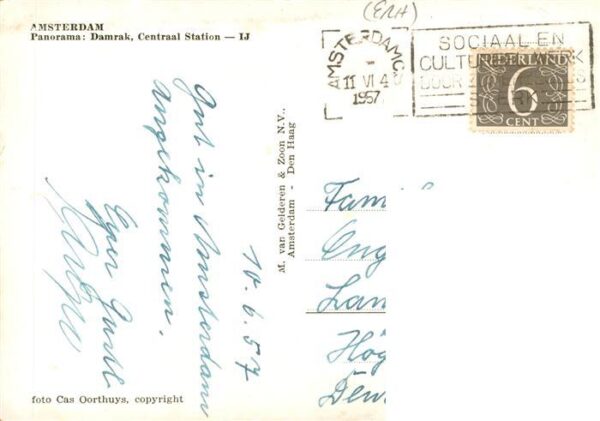 AMSTERDAM
Panorama: Damrak, Centraal Station — IJ
(ERH)
AMSTERDAM C.
11 VI 4
1957
SOCIAAL EN
DOOR
NEDERLAND
6
CENT
10.6.57
Gut in Amsterdam
angekommen.
Euer
M. van Gelderen & Zoon N.V.,
Amsterdam - Den Haag
Fam
Eng
Lan
Hög
foto Cas Oorthuys, copyright